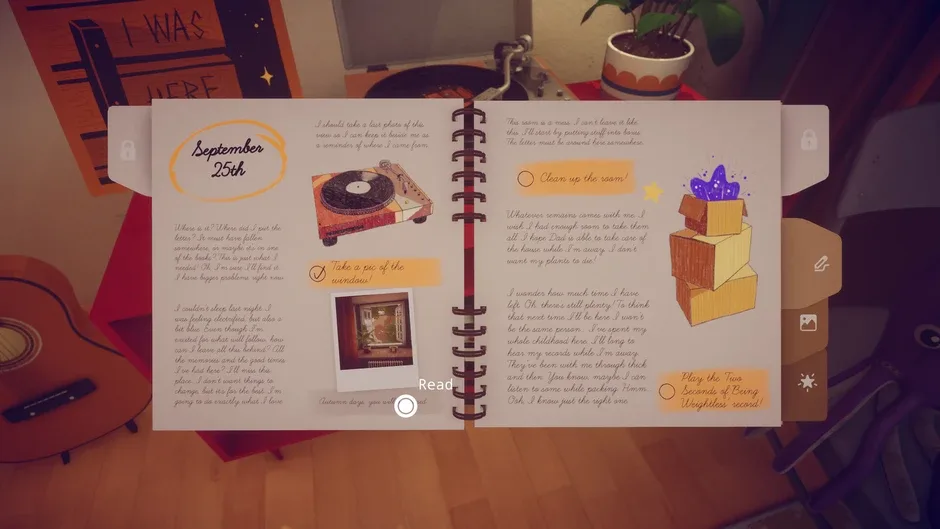 I WAS
HERE
September
25th
Where is it? Where did I put the
letter? It must have fallen
somewhere, or maybe it's in one
of the books? This is just what I
needed! Oh, I'm sure I'll find it.
I have bigger problems right now.
I couldn't sleep last night. I
was feeling electrified, but also a
bit blue. Even though I'm
excited for what will follow, how
can I leave all this behind? All
the memories and the good times
I've had here? I'll miss this
place. I don't want things to
change, but it's for the best. I'm
going to do exactly what I love
I should take a last photo of this
view so I can keep it beside me as
a reminder of where I came from.
Take a pic of the
window!
Autumn days, you will
Read
This room is a mess. I can't leave it like
this. I'll start by putting stuff into boxes.
The letter must be around here somewhere.
Clean up the room!
Whatever remains comes with me. I
wish I had enough room to take them
all. I hope Dad is able to take care of
the house while I'm away. I don't
want my plants to die!
I wonder how much time I have
left. Oh, there's still plenty! To think
that next time I'll be here I won't
be the same person... I've spent my
whole childhood here. I'll long to
hear my records while I'm away.
They've been with me through thick
and thin. You know, maybe I can
listen to some while packing. Hmm...
Ooh, I know just the right one.
Play the 'Two
Seconds of Being
Weightless' record!